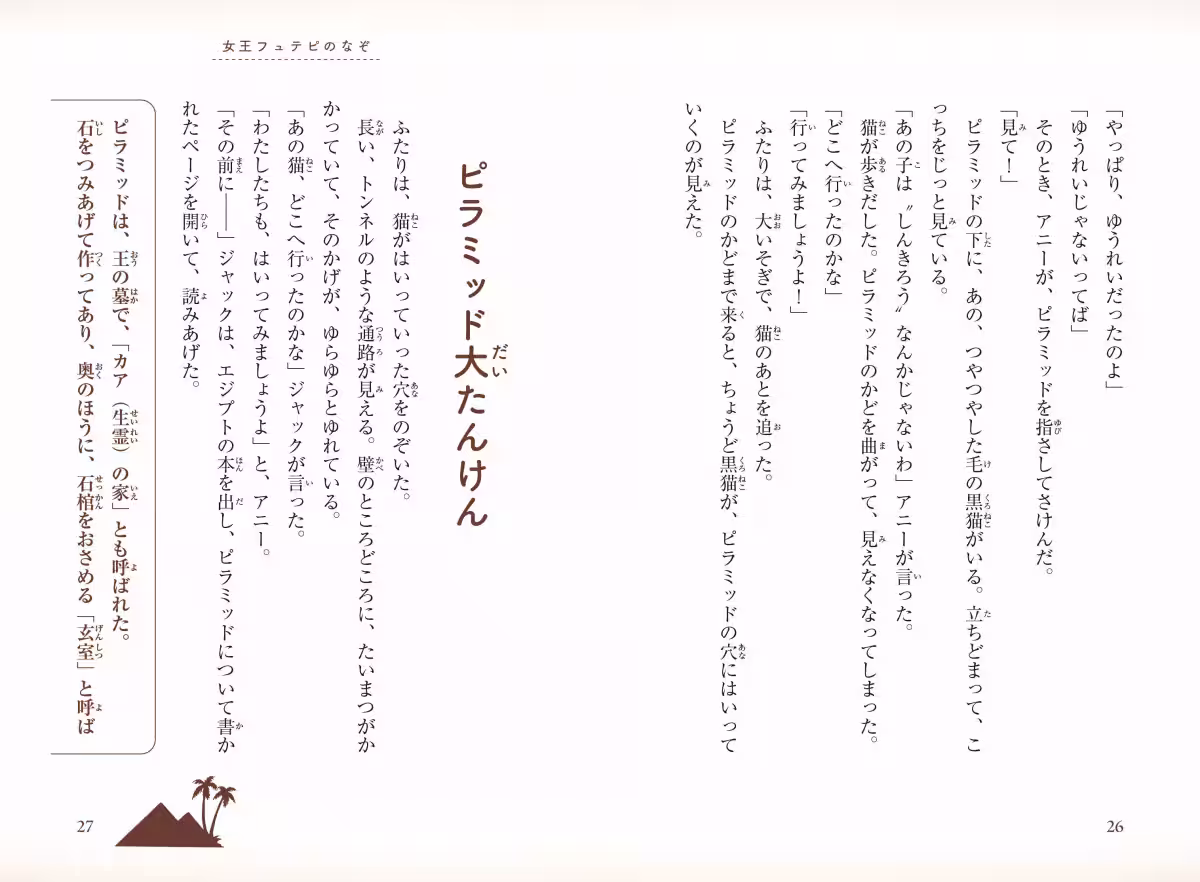 「やっぱり、ゆうれいだったのよ」
「ゆうれいじゃないってば」
そのとき、アニーが、ピラミッドを指さしてさけんだ。
「見て！」
ピラミッドの下に、あの、つやつやした毛の黒猫がいる。立ちどまって、こ
っちをじっと見ている。
「あの子は〝しんきろう〟なんかじゃないわ」アニーが言った。
猫が歩きだした。ピラミッドのかどを曲がって、見えなくなってしまった。
「どこへ行ったのかな」
「行ってみましょうよ！」
ふたりは、大いそぎで、猫のあとを追った。
ピラミッドのかどまで来ると、ちょうど黒猫が、ピラミッドの穴にはいって
いくのが見えた。
26
女王フュテピのなぞ
ピラミッド大たんけん
ふたりは、猫がはいっていった穴をのぞいた。
長い、トンネルのような通路が見える。壁のところどころに、たいまつがか
かっていて、そのかげが、ゆらゆらとゆれている。
「あの猫、どこへ行ったのかな」ジャックが言った。
「わたしたちも、はいってみましょうよ」と、アニー。
「その前に――」ジャックは、エジプトの本を出し、ピラミッドについて書か
れたページを開いて、読みあげた。
ピラミッドは、王の墓で、「カア（生霊）の家」とも呼ばれた。
石をつみあげて作ってあり、奥のほうに、石棺をおさめる「玄室」と呼ば
27